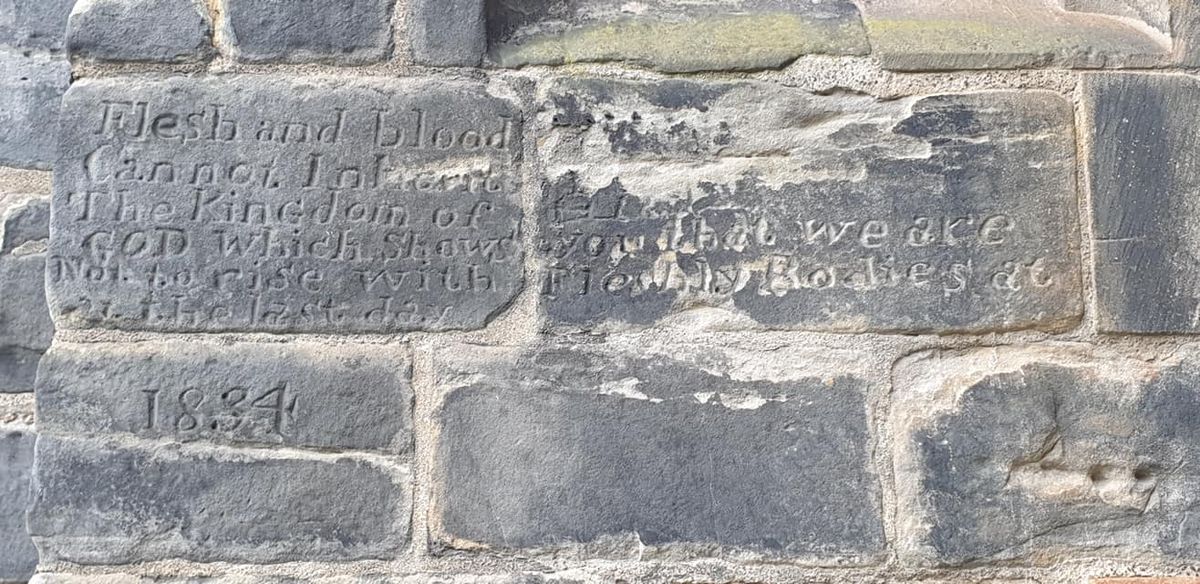 Flesh and blood
Cannot Inherit
The Kingdom of
GOD Which Shaws you that we are
Not to rise with Fleshly Bodies at
at the last day
1834